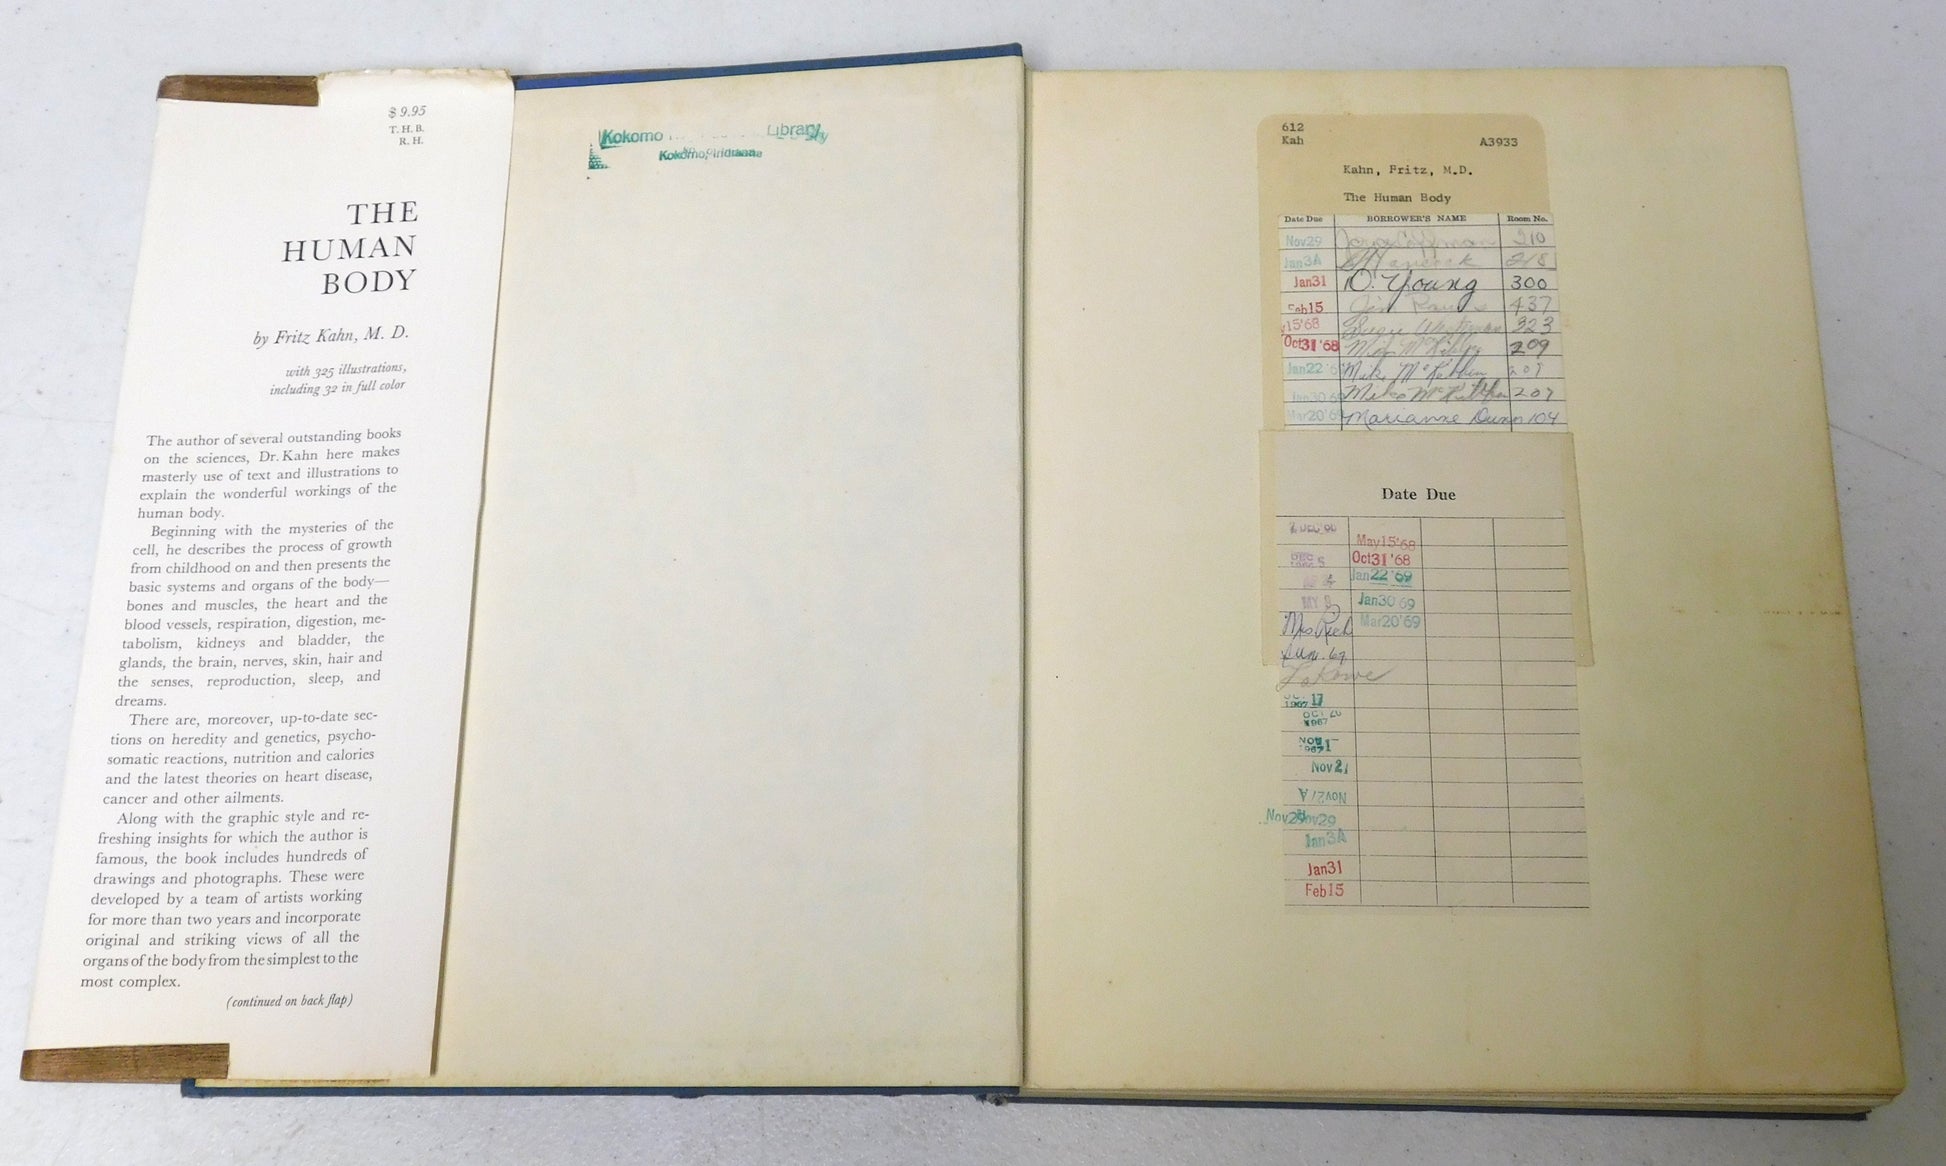 $9.95
T. H. B.
R. H.
THE
HUMAN
BODY
by Fritz Kahn, M. D.
with 325 illustrations,
including 32 in full color
The author of several outstanding books
on the sciences, Dr. Kahn here makes
masterly use of text and illustrations to
explain the wonderful workings of the
human body.
Beginning with the mysteries of the
cell, he describes the process of growth
from childhood on and then presents the
basic systems and organs of the body—
bones and muscles, the heart and the
blood vessels, respiration, digestion, me-
tabolism, kidneys and bladder, the
glands, the brain, nerves, skin, hair and
the senses, reproduction, sleep, and
dreams.
There are, moreover, up-to-date sec-
tions on heredity and genetics, psycho-
somatic reactions, nutrition and calories
and the latest theories on heart disease,
cancer and other ailments.
Along with the graphic style and re-
freshing insights for which the author is
famous, the book includes hundreds of
drawings and photographs. These were
developed by a team of artists working
for more than two years and incorporate
original and striking views of all the
organs of the body from the simplest to the
most complex.
(continued on back flap)
Kokomo Library
Kokomo, Indiana
612
Kah A3933
Kahn, Fritz, M.D.
The Human Body
Date Due BORROWER'S NAME Room No.
Nov29 310
Jan3A Hancock 218
Jan31 D. Young 300
Feb15 Jim 437
15'68 323
Oct31'68 209
Jan22'6 Mike
Jan30 69 Mike 207
Mar20'6 Marianne Dunn 104
Date Due
May15'68
DEC 5 Oct31'68
Jan22'69
MY 8 Jan30 69
Mrs. Mar20'69
17
1967
1967
NOV 1
1967
Nov 2
Nov27A
Nov29 Nov29
Jan3A
Jan31
Feb15